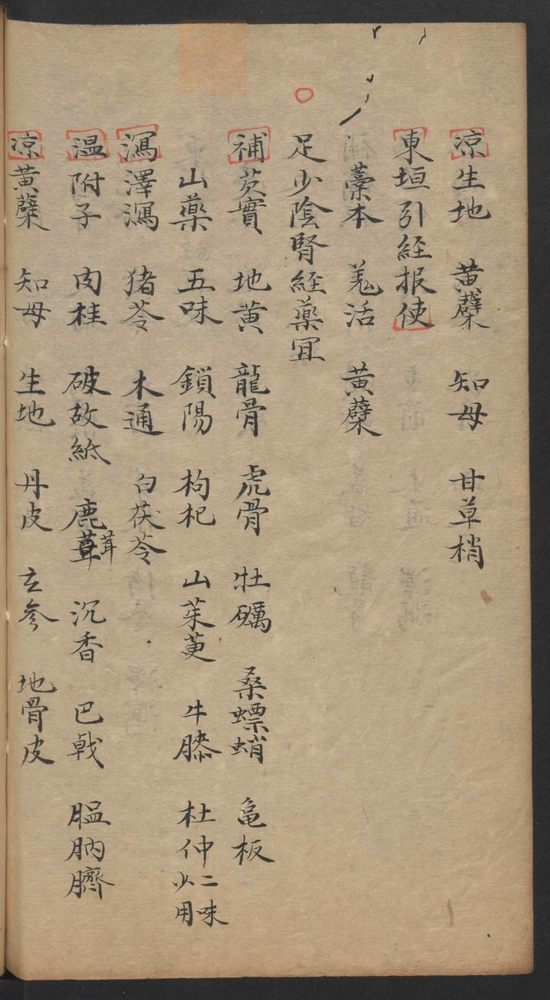 涼生地 黃蘗 知母 甘草梢
東垣引經报使
藁本 羌活 黃蘗
足少陰腎經藥宜
補芡實 地黃 龍骨 虎骨 牡礪 桑螵蛸 龟板
山藥 五味 鎖陽 枸杞 山茱萸 牛膝 杜仲二味少用
瀉澤瀉 猪苓 木通 白茯苓
温附子 肉桂 破故紙 鹿茸 茸 沉香 巴戟 膃肭臍
涼黃蘗 知母 生地 丹皮 玄参 地骨皮